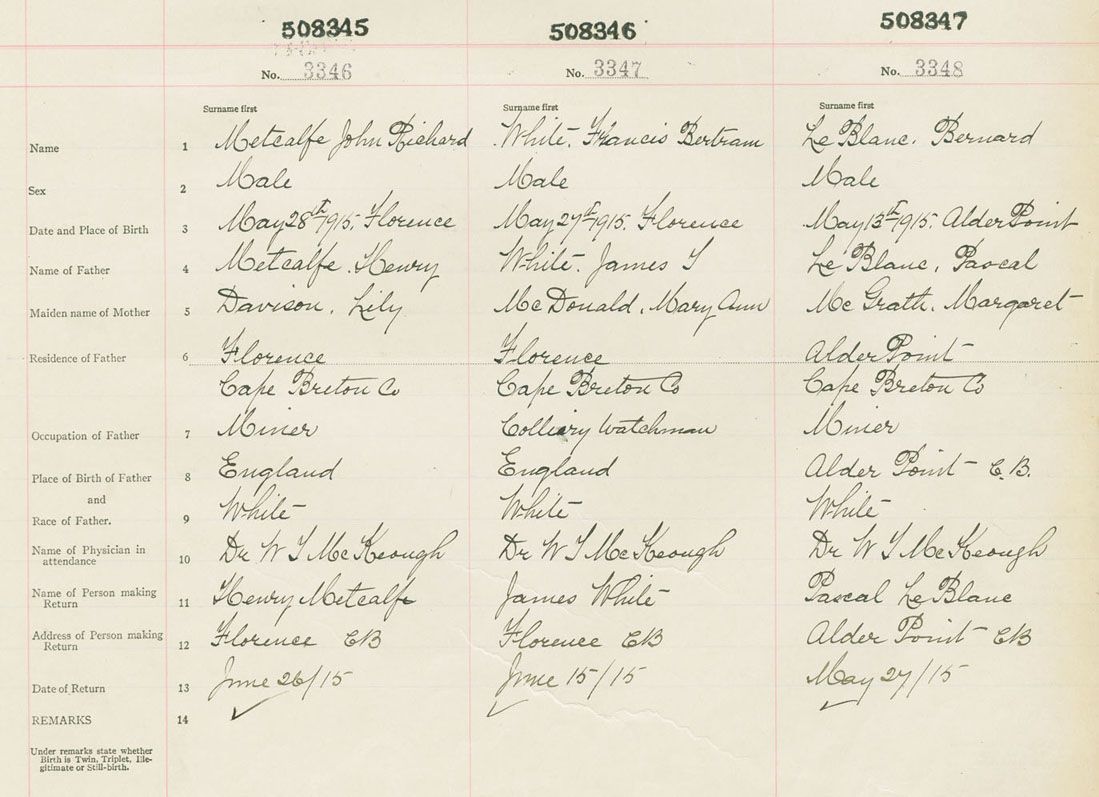 508345 508346 508347
No. 3346 No. 3347 No. 3348
Surname first Surname first Surname first
Name 1 Metcalfe John Richard White. Francis Bertram Le Blanc. Bernard
Sex 2 Male Male Male
Date and Place of Birth 3 May 28th 1915. Florence May 27th 1915. Florence May 13th 1915. Alder Point
Name of Father 4 Metcalfe. Henry White. James J Le Blanc. Pascal
Maiden name of Mother 5 Davison. Lily McDonald. Mary Ann McGrath. Margaret
Residence of Father 6 Florence Florence Alder Point
Cape Breton Co Cape Breton Co Cape Breton Co
Occupation of Father 7 Miner Colliery Watchman Miner
Place of Birth of Father 8 England England Alder Point C.B.
and
Race of Father. 9 White White White
Name of Physician in
attendance 10 Dr W J McKeough Dr W J McKeough Dr W J McKeough
Name of Person making
Return 11 Henry Metcalfe James White Pascal Le Blanc
Address of Person making
Return 12 Florence CB Florence CB Alder Point CB
Date of Return 13 June 26/15 June 15/15 May 27/15
REMARKS 14
Under remarks state whether
Birth is Twin, Triplet, Ille-
gitimate or Still-birth.